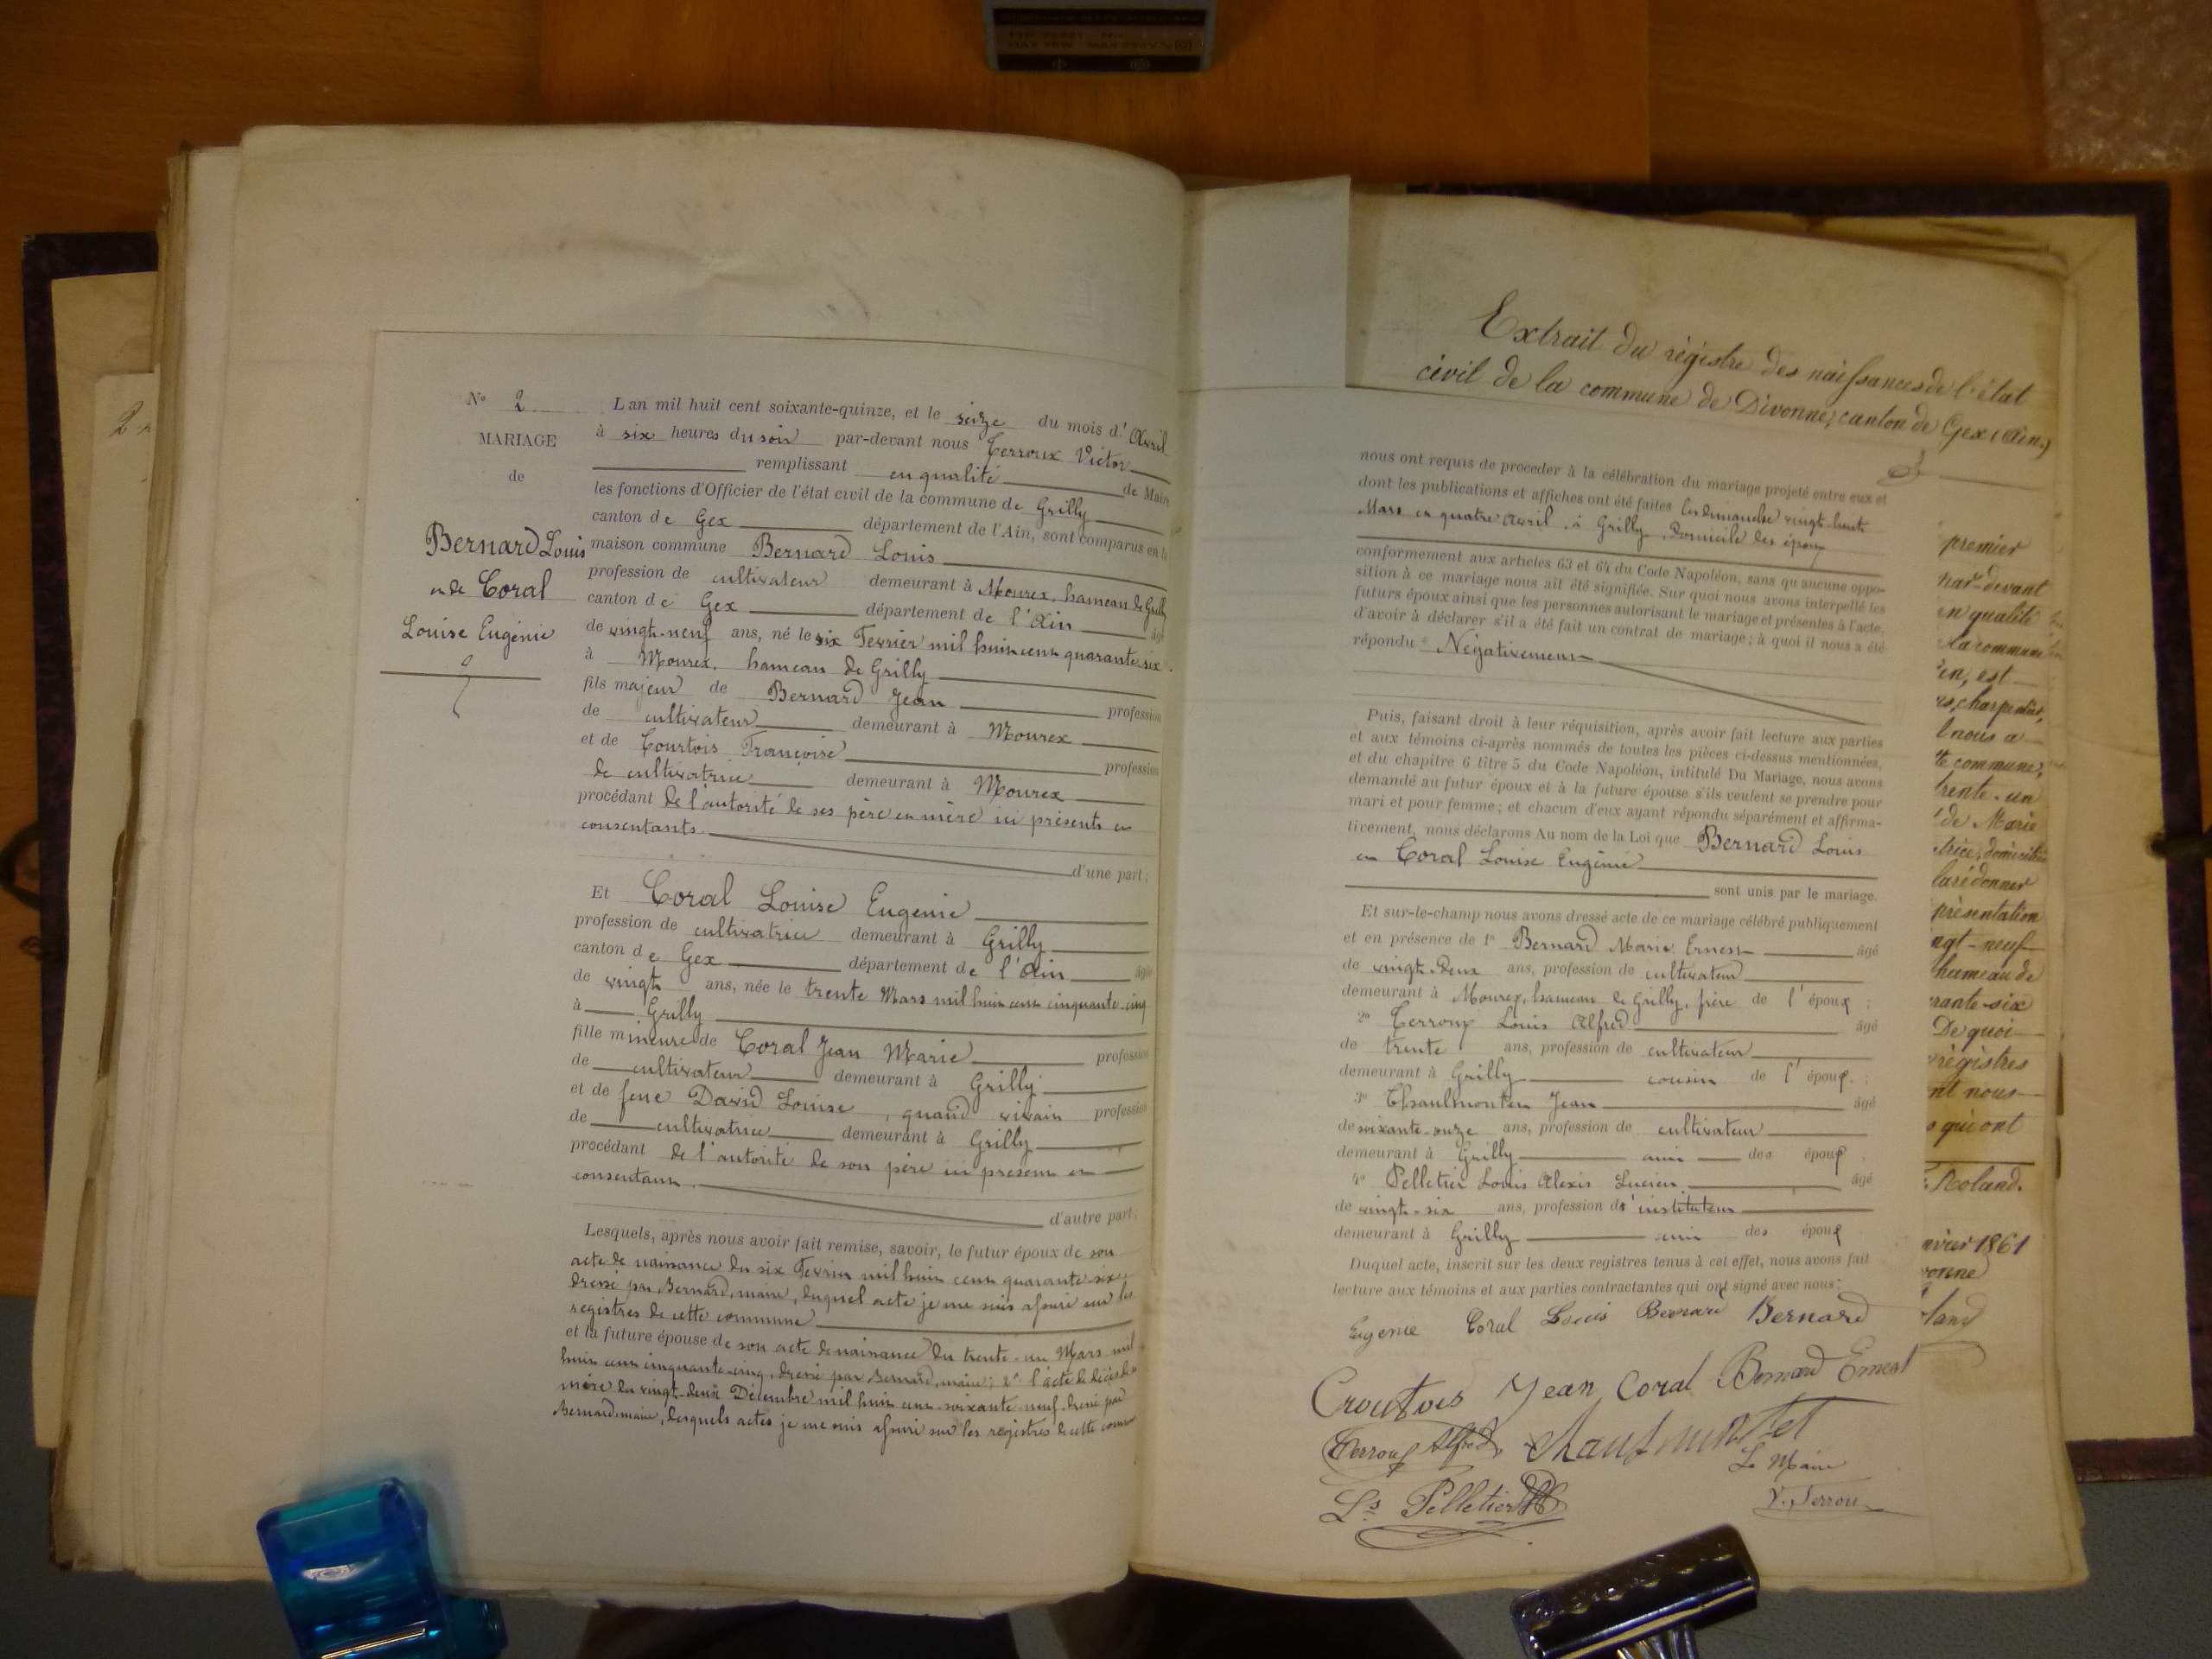 N° 2
MARIAGE
de
Bernard Louis
et de Coral
Louise Eugénie
Lan mil huit cent soixante-quinze, et le seize du mois d'Avril
à six heures du soir par-devant nous Terroux Victor
remplissant en qualité de Maire
les fonctions d'Officier de l'état civil de la commune de Grilly
canton de Gex département de l'Ain, sont comparus en la
maison commune Bernard Louis
profession de cultivateur demeurant à Mourex, hameau de Grilly
canton de Gex département de l'Ain âgé
de vingt-neuf ans, né le six Fevrier mil huit cent quarante-six
à Mourex, hameau de Grilly
fils majeur de Bernard Jean profession
de cultivateur demeurant à Mourex
et de Courtois Françoise profession
de cultivatrice demeurant à Mourex
procédant de l'autorité de ses père et mère ici présents et
consentants
d'une part;
Et Coral Louise Eugénie
profession de cultivatrice demeurant à Grilly
canton de Gex département de l'Ain âgée
de vingt ans, née le trente Mars mil huit cent cinquante-cinq
à Grilly
fille mineure de Coral Jean Marie profession
de cultivateur demeurant à Grilly
et de feue David Louise, quand vivait profession
de cultivatrice demeurant à Grilly
procédant de l'autorité de son père ici présent et
consentant.
d'autre part;
Lesquels, après nous avoir fait remise, savoir, le futur époux de son
acte de naissance du six Fevrier mil huit cent quarante six
dressé par Bernard, maire, duquel acte je me suis assuré sur les
registres de cette commune
et la future épouse de son acte de naissance du trente-un Mars mil
huit cent cinquante-cinq, dressé par Bernard, maire; 2° l'acte de décès de sa
mère du vingt-deux Décembre mil huit cent soixante-neuf dressé par
Bernard maire, desquels actes je me suis assuré sur les registres de cette commune
Extrait du régistre des naissances de l'état
civil de la commune de Divonne, canton de Gex (Ain.)
nous ont requis de proceder à la célébration du mariage projeté entre eux et
dont les publications et affiches ont été faites les dimanches vingt-huit
Mars et quatre Avril, à Grilly, domicile des époux
conformement aux articles 63 et 64 du Code Napoléon, sans qu aucune oppo-
sition à ce mariage nous ait été signifiée. Sur quoi nous avons interpellé les
futurs époux ainsi que les personnes autorisant le mariage et présentes à l'acte,
d'avoir à déclarer s'il a été fait un contrat de mariage; à quoi il nous a été
répondu Négativement
Puis, faisant droit à leur réquisition, après avoir fait lecture aux parties
et aux témoins ci-après nommés de toutes les pièces ci-dessus mentionnées,
et du chapitre 6 titre 5 du Code Napoléon, intitulé Du Mariage, nous avons
demandé au futur époux et à la future épouse s'ils veulent se prendre pour
mari et pour femme; et chacun d'eux ayant répondu séparément et affirma-
tivement, nous déclarons Au nom de la Loi que Bernard Louis
et Coral Louise Eugénie
sont unis par le mariage.
Et sur-le-champ nous avons dressé acte de ce mariage célébré publiquement
et en présence de 1° Bernard Marie Ernest âgé
de vingt-deux ans, profession de cultivateur
demeurant à Mourex, hameau de Grilly, frère de l'époux;
2° Terroux Louis Alfred âgé
de trente ans, profession de cultivateur
demeurant à Grilly cousin de l'époux.;
3° Chaulmontet Jean âgé
de soixante-onze ans, profession de cultivateur
demeurant à Grilly ami des époux;
4° Pelletier Louis Alexis Lucien âgé
de vingt-six ans, profession d'instituteur
demeurant à Grilly ami des époux
Duquel acte, inscrit sur les deux registres tenus à cet effet, nous avons fait
lecture aux témoins et aux parties contractantes qui ont signé avec nous:
Eugenie Coral Louis Bernard Bernard
Croutois Jean Coral Bernard Ernest
Terroux Alfred Chaulmontet
Le Maire
Ls Pelletier V. Terroux
premier
par-devant
en qualité
la commune
en, est
charpentier,
nous a
commune,
trente-un
de Marie
domiciliée
donner
présentation
vingt-neuf
hameau de
quarante-six
De quoi
régistres
nous
qui ont
Roland.
1861